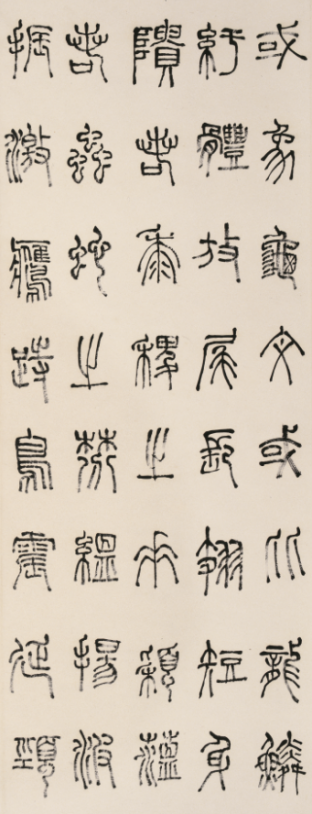 或象龜文或比龍鱗
紆體放尾長翅短身
隤若黍稷之垂穎蘊
若蟲蛇之棼縕揚波
振激鷹跱鳥震延頸